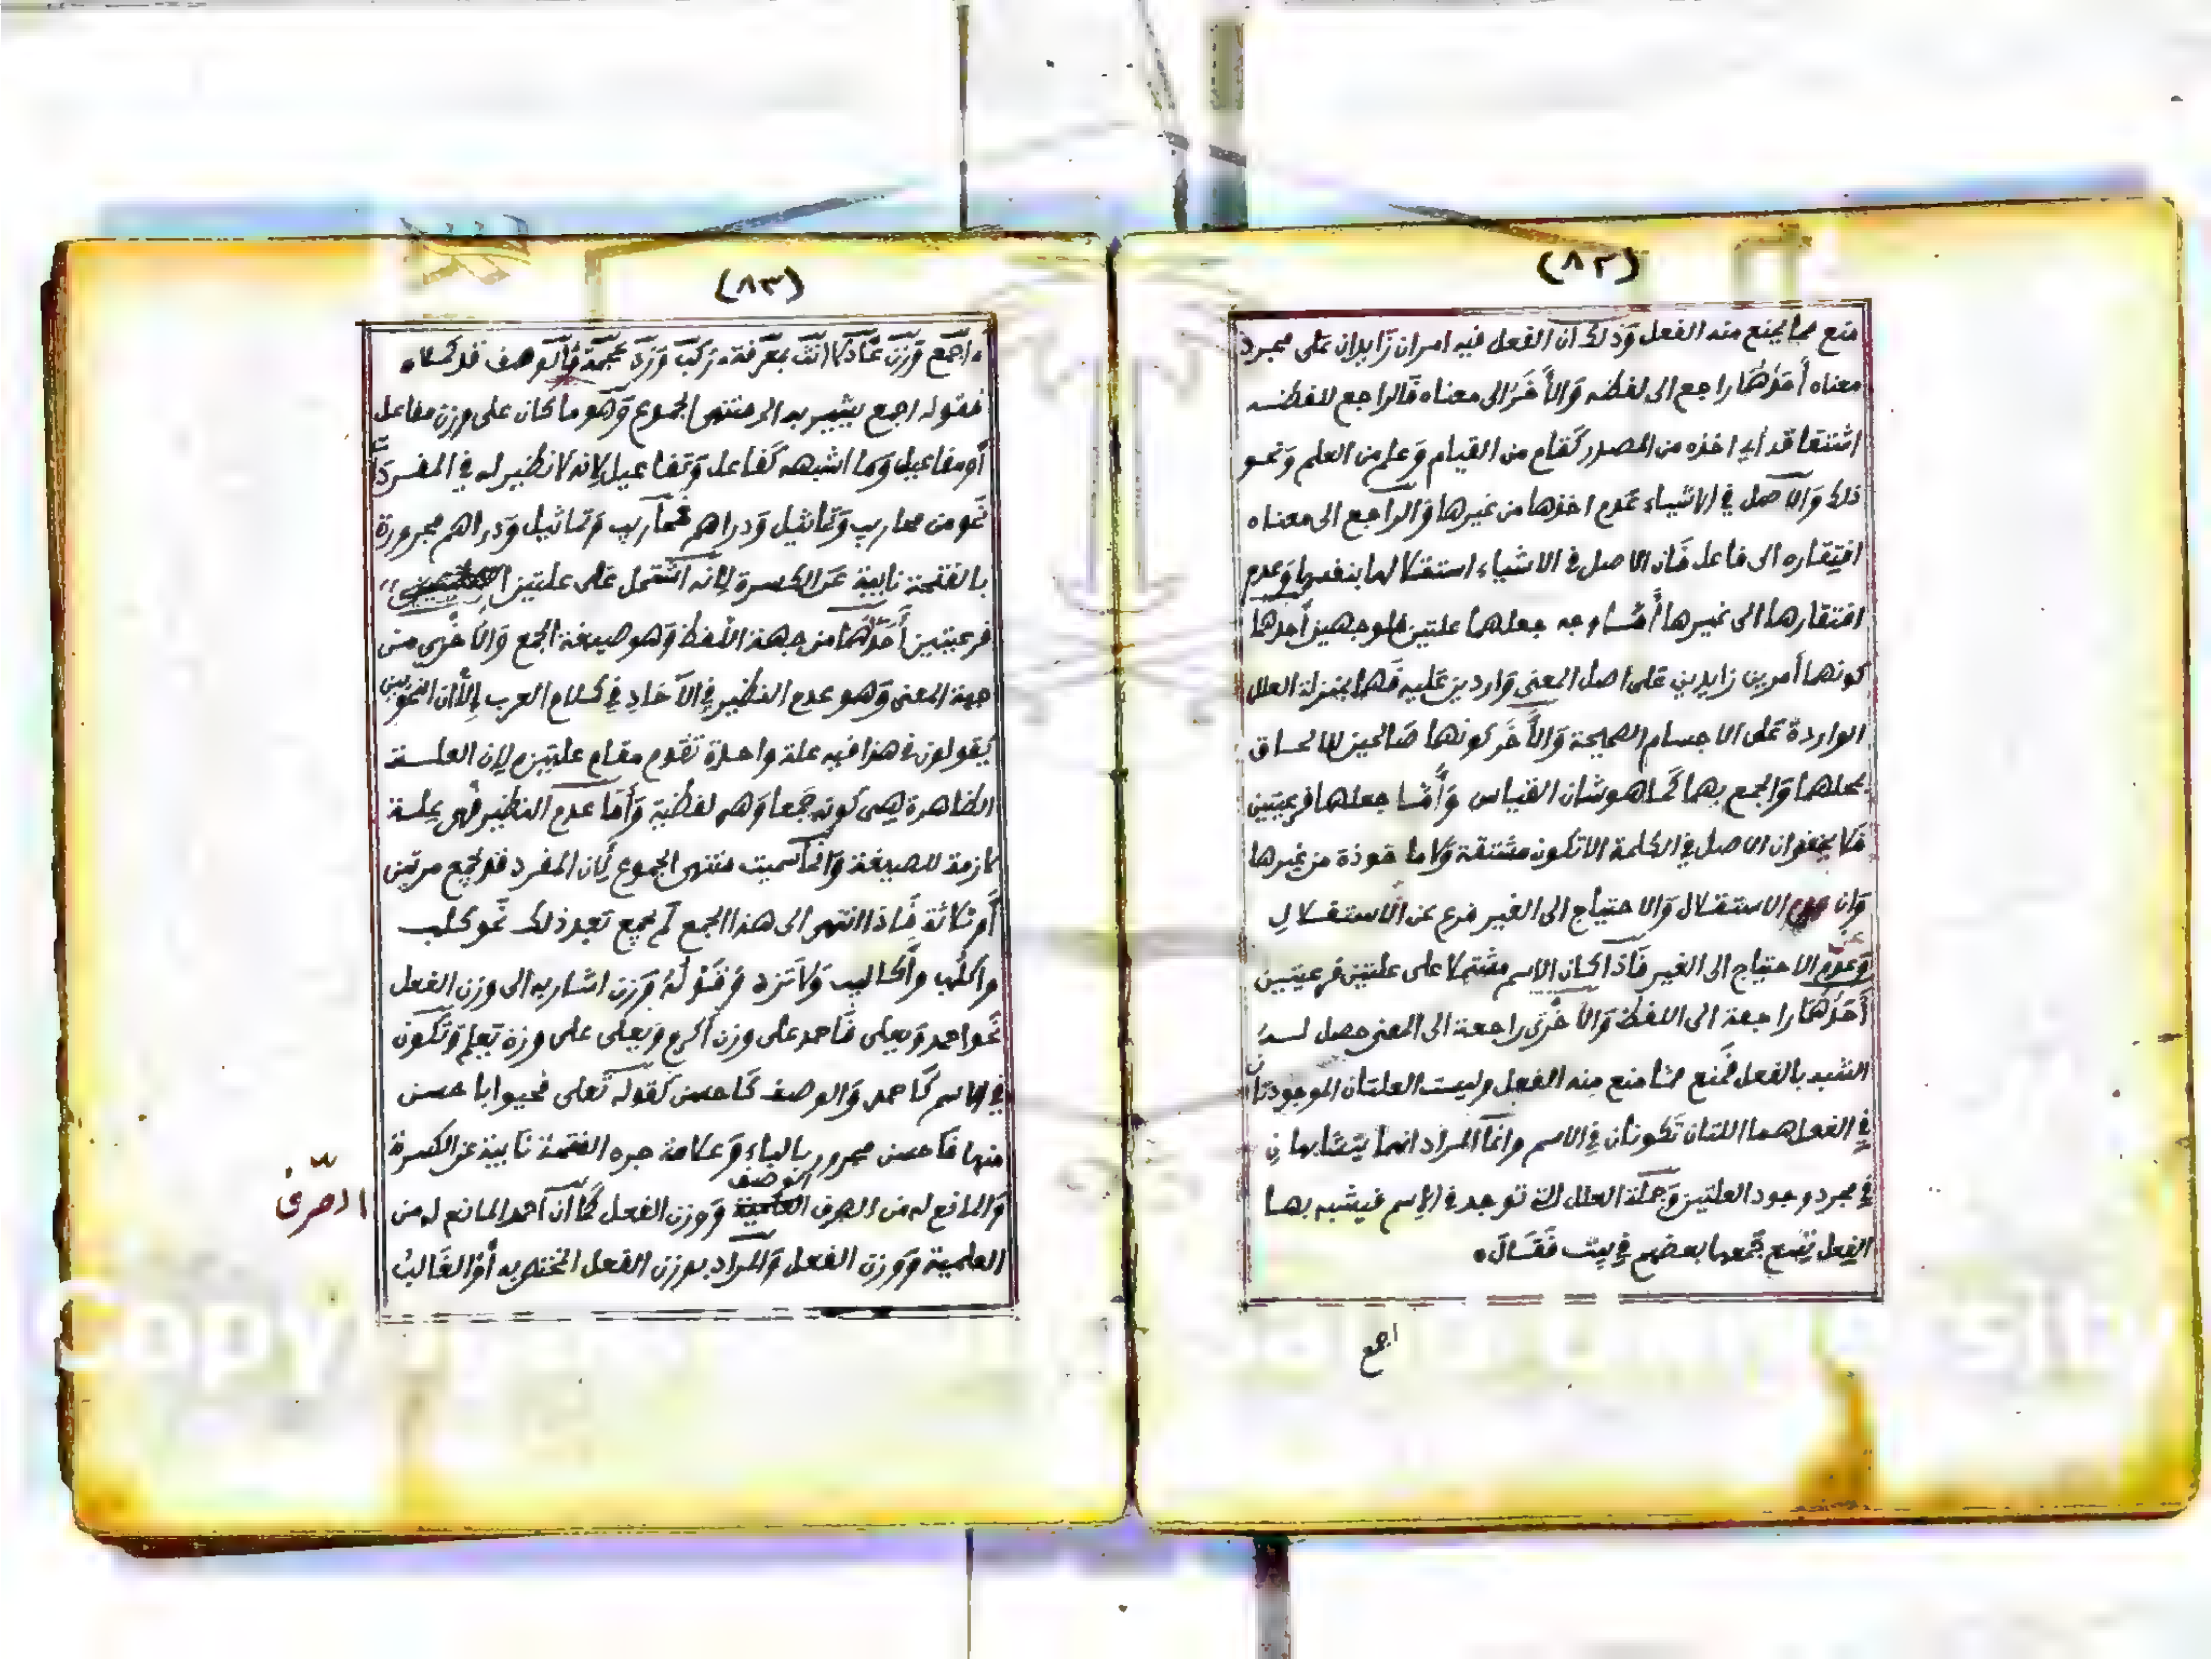 (٨٢)
منع مما يمنع منه الفعل وذلك ان الفعل فيه امران زايدان على مجرد
معناه أحدهما راجع الى لفظه والأخر الى معناه فالراجع للفظه
اشتقاقه أي اخذه من المصدر كقام من القيام وعلم من العلم ونحو
ذلك والاصل في الاشياء عدم اخذها من غيرها والراجع الى معناه
افتقاره الى فاعل فان الاصل في الاشياء استقلالها بنفسها وعدم
افتقارها الى غيرها أما وجه جعلهما علتين فلوجهين أحدها
كونهما أمرين زايدين على اصل المعنى واردين عليه فهما بمنزلة العلل
الواردة على الاجسام الصحيحة والأخر كونهما صالحين للالحاق
بمحلهما والجمع بهما كما هو شان القياس وأما جعلهما فرعيتين
فلا يخفى ان الاصل في الكلمة الا تكون مشتقة ولا ماخوذة من غيرها
وان الاستقلال والاحتياج الى الغير فرع عن الاستقلال
وعدم الاحتياج الى الغير فاذا كان الاسم مشتملا على علتين فرعيتين
أحدهما راجعة الى اللفظ والأخرى راجعة الى المعنى حصل له
الشبه بالفعل فمنع مما منع منه الفعل وليست العلتان الموجودتان
في الفعل هما اللتان تكونان في الاسم وانما المراد انهما يتشابهان
في مجرد وجود العلتين وجملة العلل التي توجد في الاسم فيشبه بها
الفعل تسع جمعها بعضهم في بيت فقال
اجمع
(٨٣)
اجمع وزن عادلا انث بمعرفة ركب وزد عجمة فالوصف قد كملا
فقوله اجمع يشير به الى منتهى الجموع وهو ما كان على وزن مفاعل
أو مفاعيل وما اشبهه كفاعل وتفاعيل لانه لا نظير له في المفرد
نحو من محاريب وتماثيل ودراهم فمحاريب وتماثيل ودراهم مجرورة
بالفتحة نايبة عن الكسرة لانه اشتمل على علتين
فرعيتين أحدهما من جهة اللفظ وهو صيغة الجمع والاخرى من
جهة المعنى وهو عدم النظير في الآحاد في كلام العرب إلا ان النحويين
يقولون في هذا فيه علة واحدة تقوم مقام علتين لان العلة
الظاهرة هي كونه جمعا وهي لفظية وأما عدم النظير فهي علة
لازمة للصيغة وانما سميت منتهى الجموع لان المفرد قد يجمع مرتين
أو ثلاثة فاذا انتهى الى هذا الجمع لم يجمع بعد ذلك نحو كلب
واكلب وأكاليب ولا تزد وقوله وزن اشار به الى وزن الفعل
نحو احمد ويعلى فاحمد على وزن اكرم ويعلى على وزن يعلم وتكون
في الاسم كاحمد والوصف كاحسن كقوله تعلى فحيوا باحسن
منها فاحسن مجرور بالباء وعلامة جره الفتحة نايبة عن الكسرة
والمانع له من الصرف الوصف ووزن الفعل كما أن أحمد المانع له من
الصرف
العلمية ووزن الفعل والمراد بوزن الفعل المختص به أو الغالب